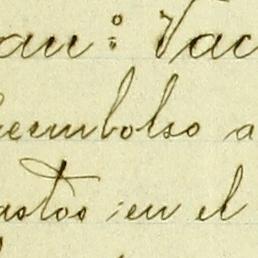 an: Vac
eembolso a
astos en el